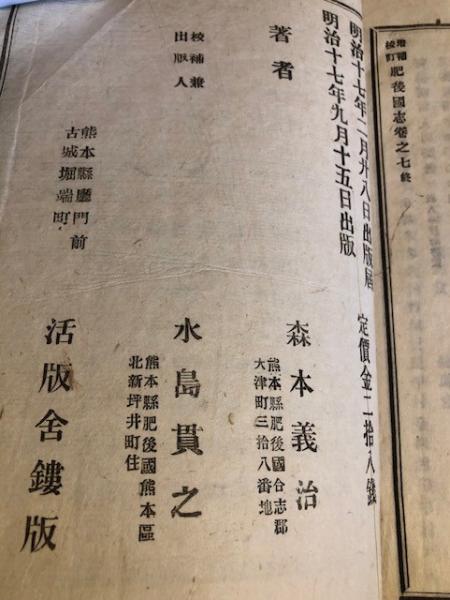 增補
校訂
肥後國志卷之七終
明治十七年二月廿八日出版屆
定價金二拾八錢
明治十七年九月十五日出版
著者
熊本縣肥後國合志郡
大津町三拾八番地
森本義治
校補兼
出版人
熊本縣肥後國熊本區
北新坪井町住
水島貫之
熊本縣廳門前
古城堀端町
活版舍鏤版